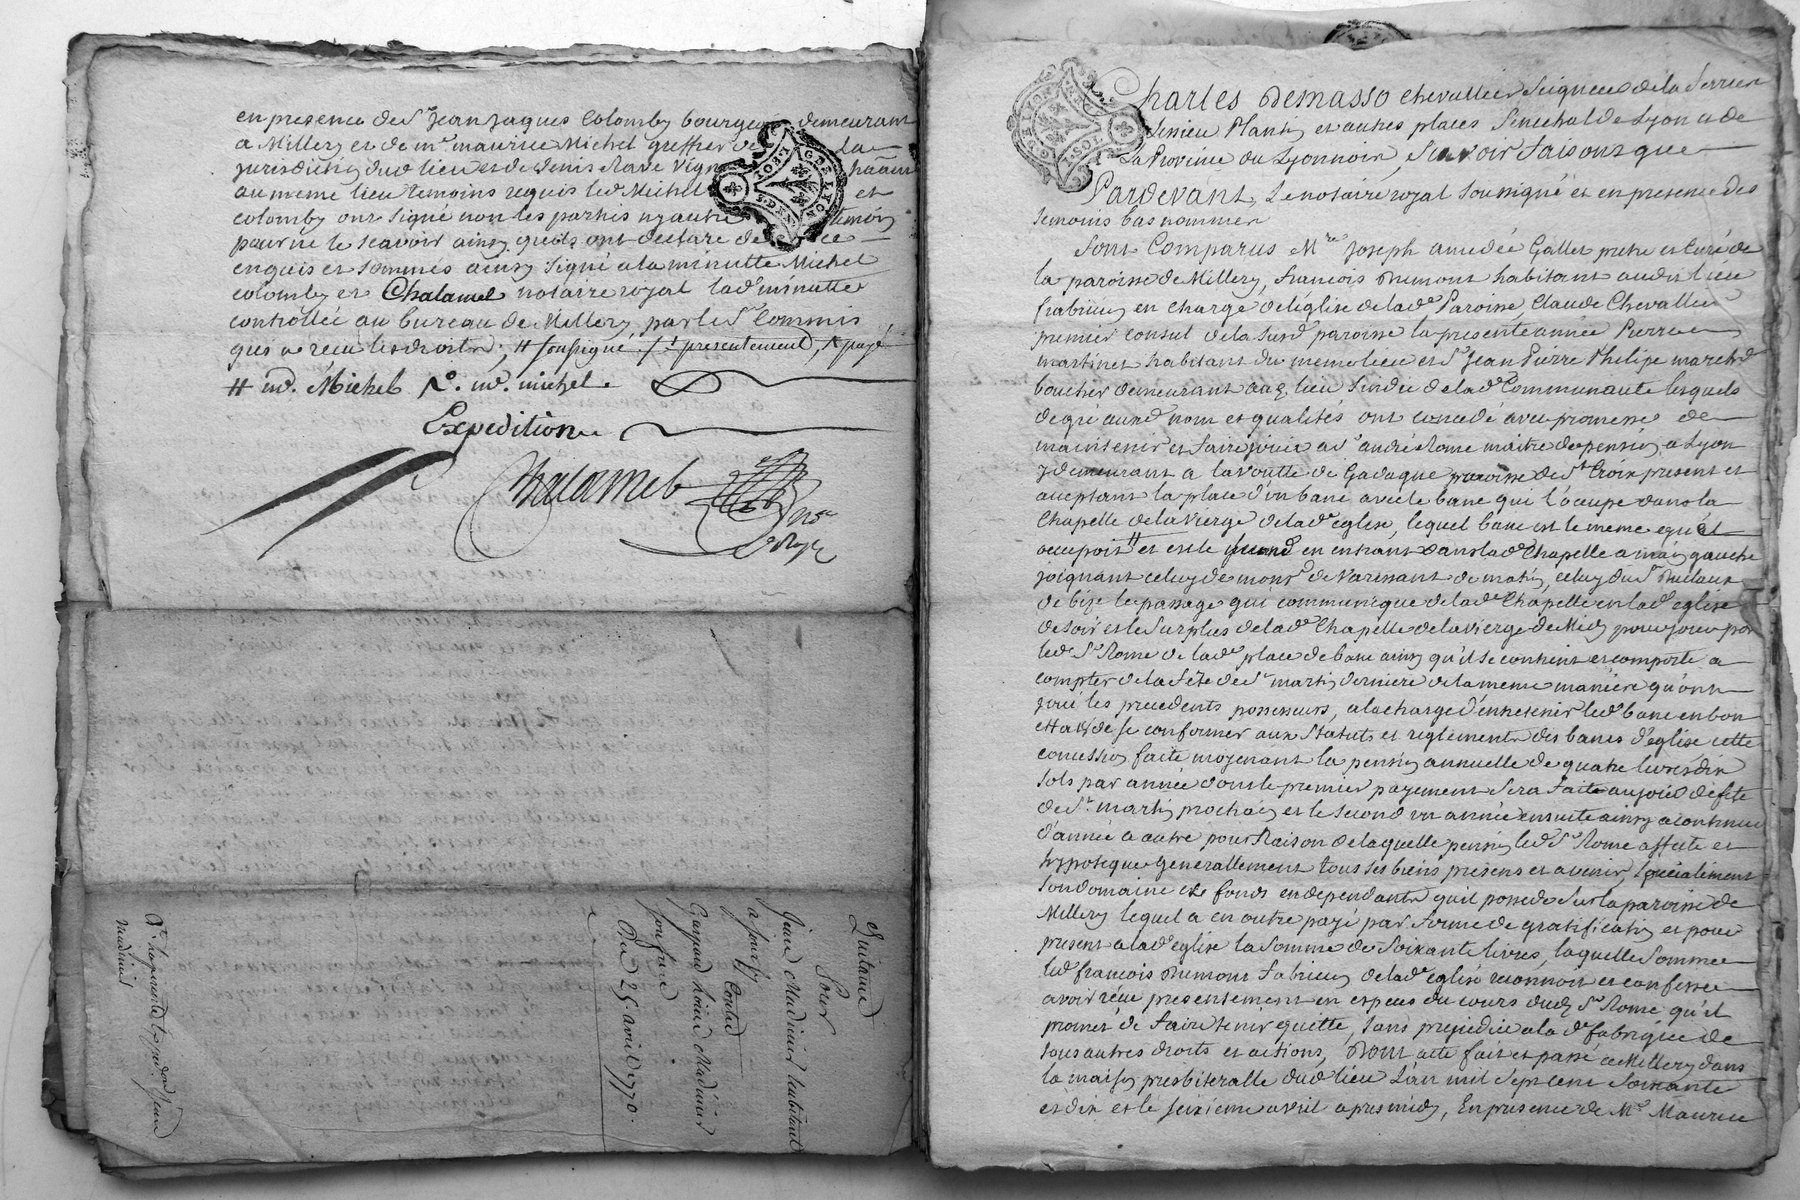 en presence de Sr Jean Jaques Colomby bourgeois demeurant
a Millery et de mre maurice Michel greffier de la
jurisdiction dud lieu et de denis
au meme lieu temoins requis led Michel et
colomby ont signé non les parties ny autre temoin
pour ne le scavoir ainsy qu'ils ont declaré de ce
enquis et sommés ainsy signé a la minutte Michel
colomby et Chalamel notaire royal lad minutte
controllée au bureau de Millery par le Sr Commis
qui a recu les droits, # soussigné, presentement,
# md. Michel md. michel
Expedition
Chalamel nore
royal
Quitance
Sieur
Jean Madinier habitant
Contre
Madinier
Du 25 avril 1770
madinier
Charles Demasso chevallier Seigneur de la Ferriere
Plantin et autres places Senechal de Lyon et de
La Province du Lyonnois, Scavoir faisons que
Pardevant Le notaire royal soussigné et en presence des
temoins bas nommer
Sont Comparus Mre Joseph amedée Gallet pretre et Curé de
la paroisse de Millery, françois Dumont habitant audit lieu
fabricien en charge de l'église de lade Paroisse, Claude Chevallier
premier consul de la susd paroisse la presente année Pierre
martinet habitant du meme lieu et Sr Jean Pierre Philipe marchd
boucher demeurant aud lieu sindic de lade Communaute lesquels
de gré auxd nom et qualités ont concedé avec promesse de
maintenir et faire jouir a Sr andré Rome maitre de pension a Lyon
y demeurant a la voutte de Gadagne paroisse de Ste Croix present et
acceptant la place d'un banc avec le banc qui l'occupe dans la
Chapelle de la Vierge de lade eglise, lequel banc est le meme qu'il
occupoit # et est le second en entrant dans lade Chapelle a main gauche
joignant celuy de monsr de Varissant de matin, celuy du Sr
de bize le passage qui communique de lade Chapelle en lade eglise
de soir et le surplus de lade Chapelle de la Vierge de Midy pour jouir par
led Sr Rome de lade place de banc ainsy qu'il se contient et comporte a
compter de la fête de St martin derniere de la meme manière qu'ont
joui les precedents possesseurs, a la charge d'entretenir led banc en bon
etat et de se conformer aux Statuts et reglements des bancs d'eglise cette
concession faite moyenant la pension annuelle de quatre livres dix
sols par année dont le premier payement sera faite aujourd de fete
de St martin prochain et le second un année ensuite ainsy a continuer
d'année a autre pour Raison de laquelle pension led Sr Rome affecte et
hypoteque generallement tous ses biens presens et avenir, specialement
son domaine et fonds en dependants qu'il possede sur la paroisse de
Millery lequel a en outre payé par forme de gratification et pour
present a lade eglise la somme de Soixante livres, laquelle somme
led françois Dumont fabricien de lade eglise reconnoit et confesse
avoir réçu presentement en especes du cours dud Sr Rome qu'il
promet de faire tenir quitte, sans prejudice a lade fabrique de
tous autres droits et actions, Dont acte fait et passé a Millery dans
la maison presbiteralle dud lieu L'an mil sept cent Soixante
et dix et le seizieme avril apres midy, En presence de Mre Maurice